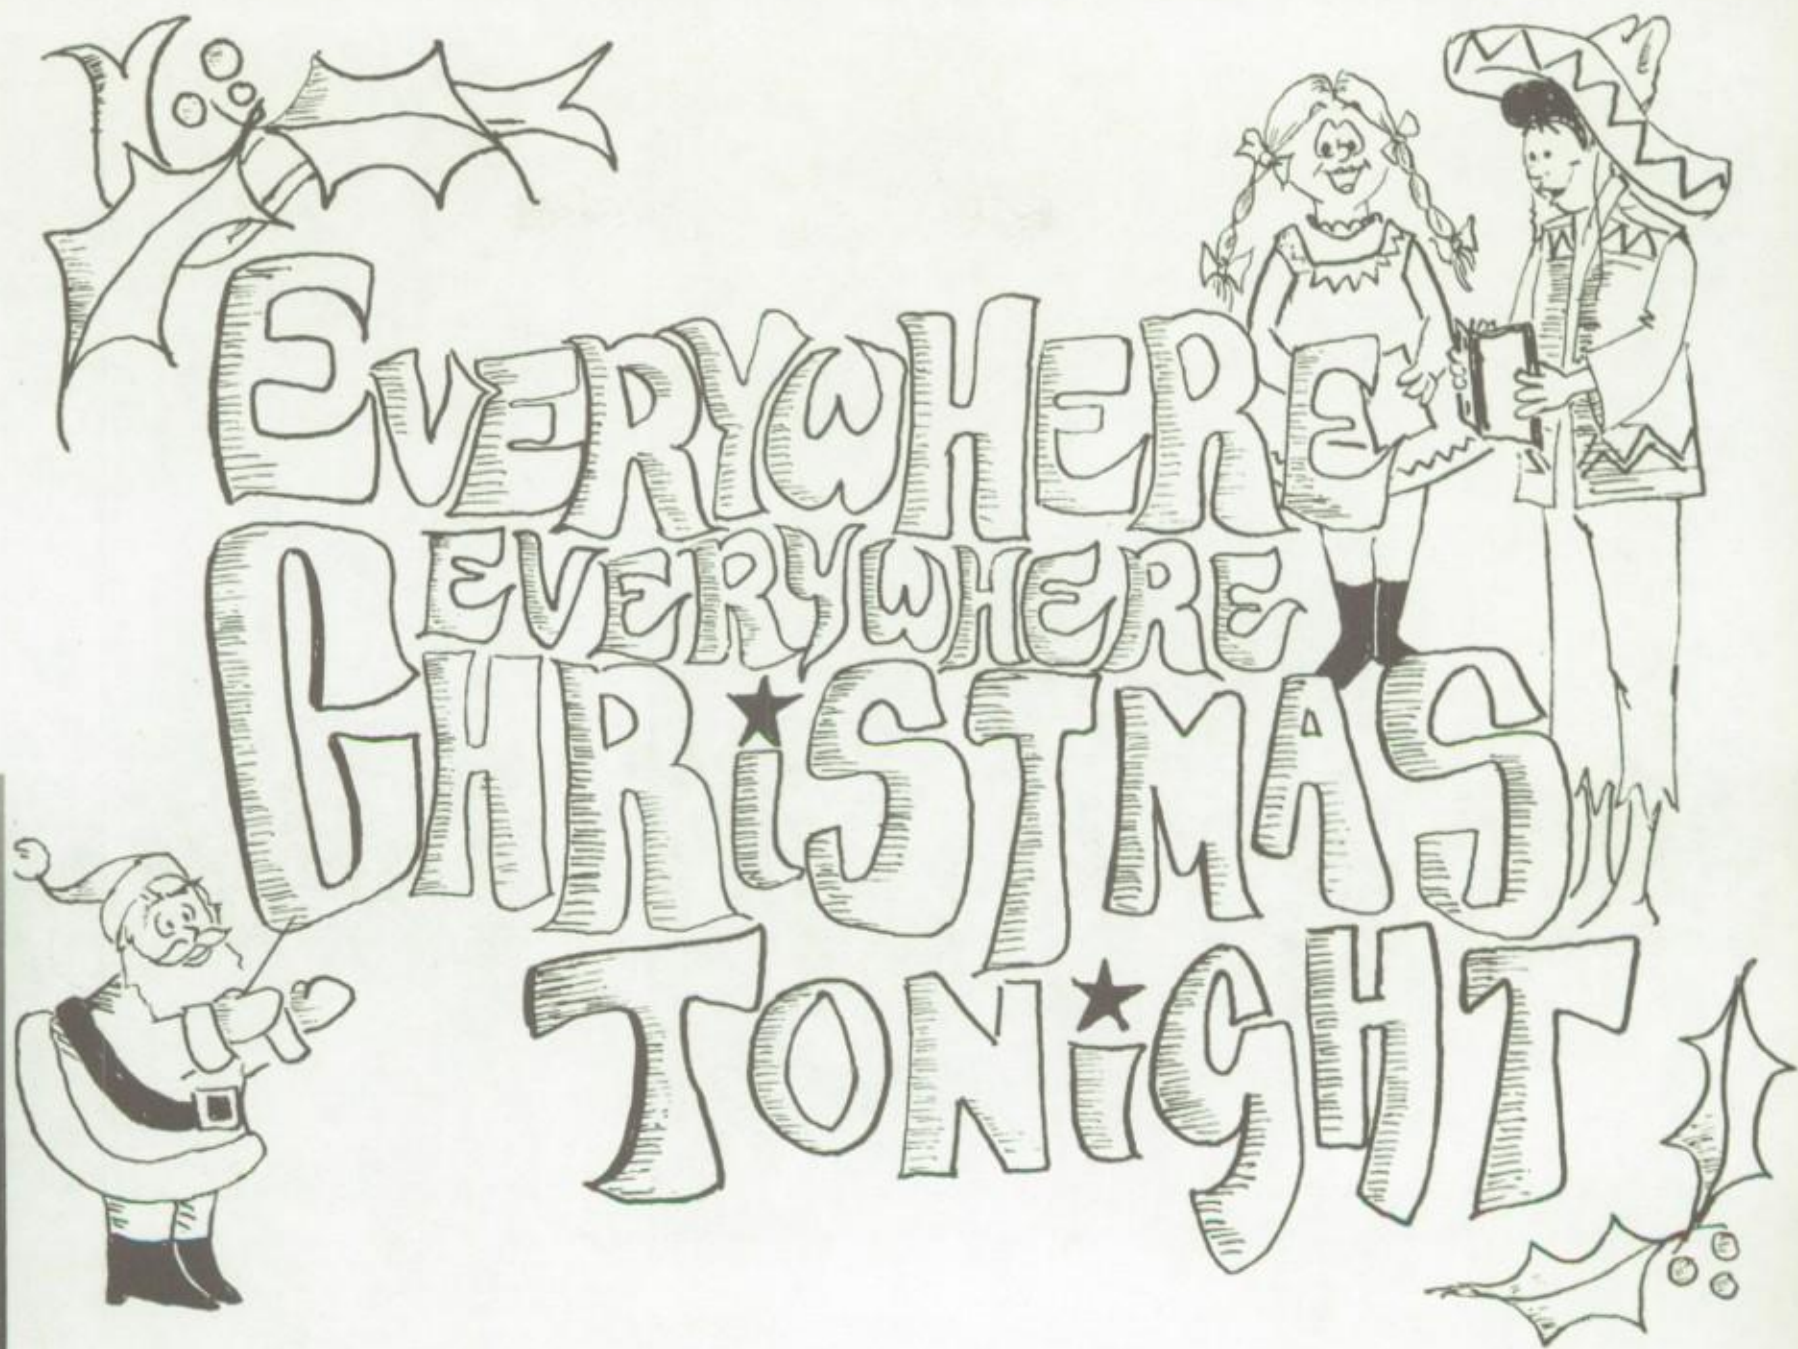 EVERYWHERE
EVERYWHERE
CHRiSTMAS
TONiGHT